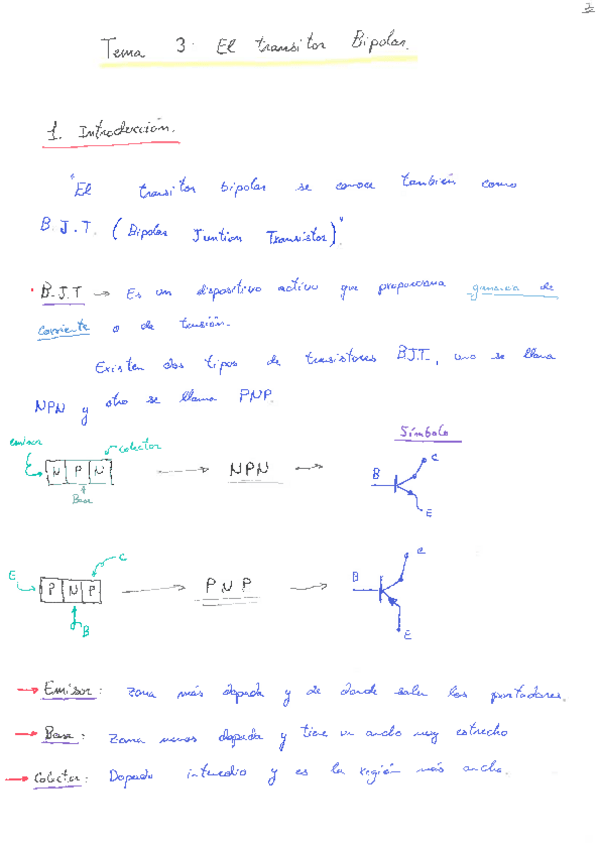 2
Tema 3: El transitor Bipolar.
1. Introducción.
"El transitor bipolar se conoce también como
B.J.T. (Bipolar Juntion Transistor)".
B.J.T → Es un dispositivo activo que proporciona ganancia de
corriente o de tensión.
Existen dos tipos de transistores BJT., uno se llama
NPN y otro se llama PNP.
Símbolo
emisor colector
N P N → NPN → B C E
Base
E C
P N P → PNP → B C E
B
→ Emisor: zona más dopada y de donde salen los portadores.
→ Base: zona menos dopada y tiene un ancho muy estrecho
→ Colector: Dopado intermedio y es la región más ancha.